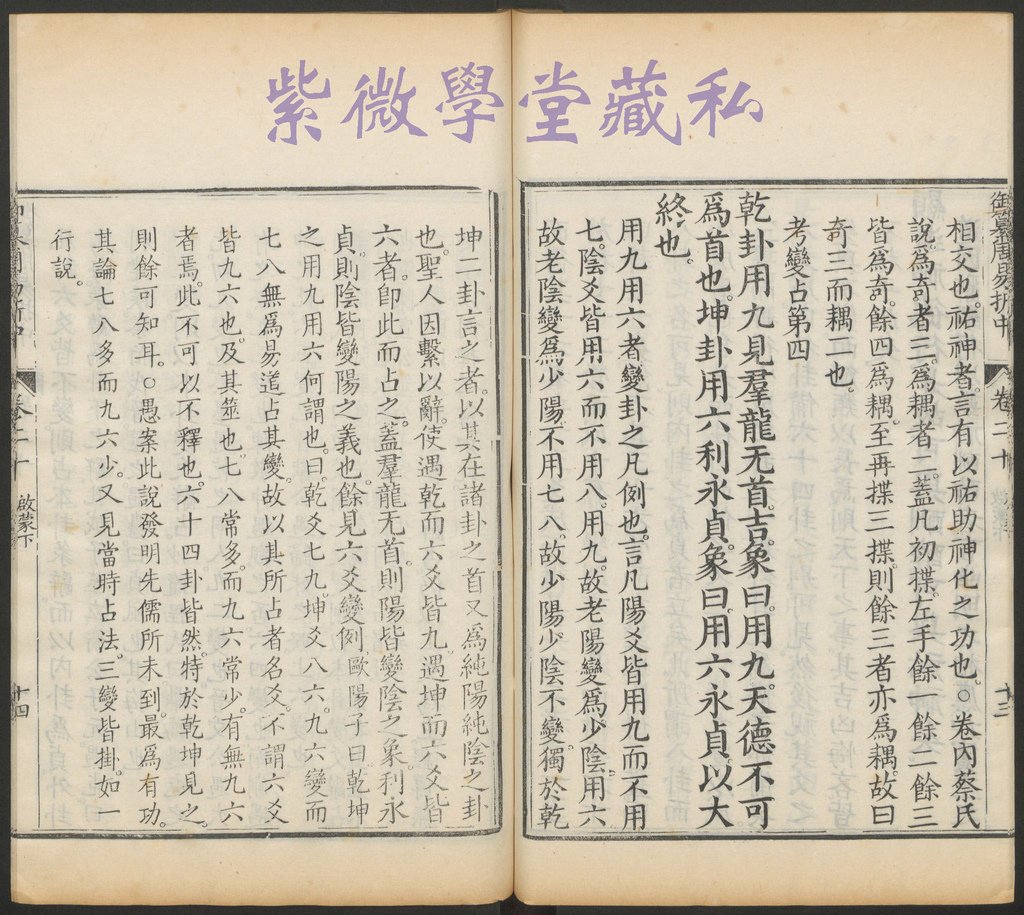 紫微學堂藏私
御纂周易折中
卷二十
十三
相交也。祐神者。言有以祐助神化之功也。○卷內蔡氏
說。爲奇者三。爲耦者二。蓋凡初揲。左手餘一餘二餘三
皆爲奇。餘四爲耦。至再揲三揲。則餘三者亦爲耦。故曰
奇三而耦二也。
考變占第四
乾卦用九。見羣龍无首。吉。象曰。用九。天德不可
爲首也。坤卦用六。利永貞。象曰。用六永貞。以大
終也。
用九用六者。變卦之凡例也。言凡陽爻皆用九而不用
七。陰爻皆用六而不用八。用九。故老陽變爲少陰。用六
故老陰變爲少陽。不用七八。故少陽少陰不變。獨於乾
坤二卦言之者。以其在諸卦之首。又爲純陽純陰之卦
也。聖人因繫以辭。使遇乾而六爻皆九。遇坤而六爻皆
六者。卽此而占之。蓋羣龍无首。則陽皆變陰之象。利永
貞。則陰皆變陽之義也。餘見六爻變例。歐陽子曰。乾坤
之用九用六何謂也。曰。乾爻七九。坤爻八六。九六變而
七八無爲。易道占其變。故以其所占者名爻。不謂六爻
皆九六也。及其筮也。七八常多。而九六常少。有無九六
者焉。此不可以不釋也。六十四卦皆然。特於乾坤見之。
則餘可知耳。○愚案此說發明先儒所未到。最爲有功。
其論七八多而九六少。又見當時占法。三變皆掛。如一
行說。
啟蒙下
十四